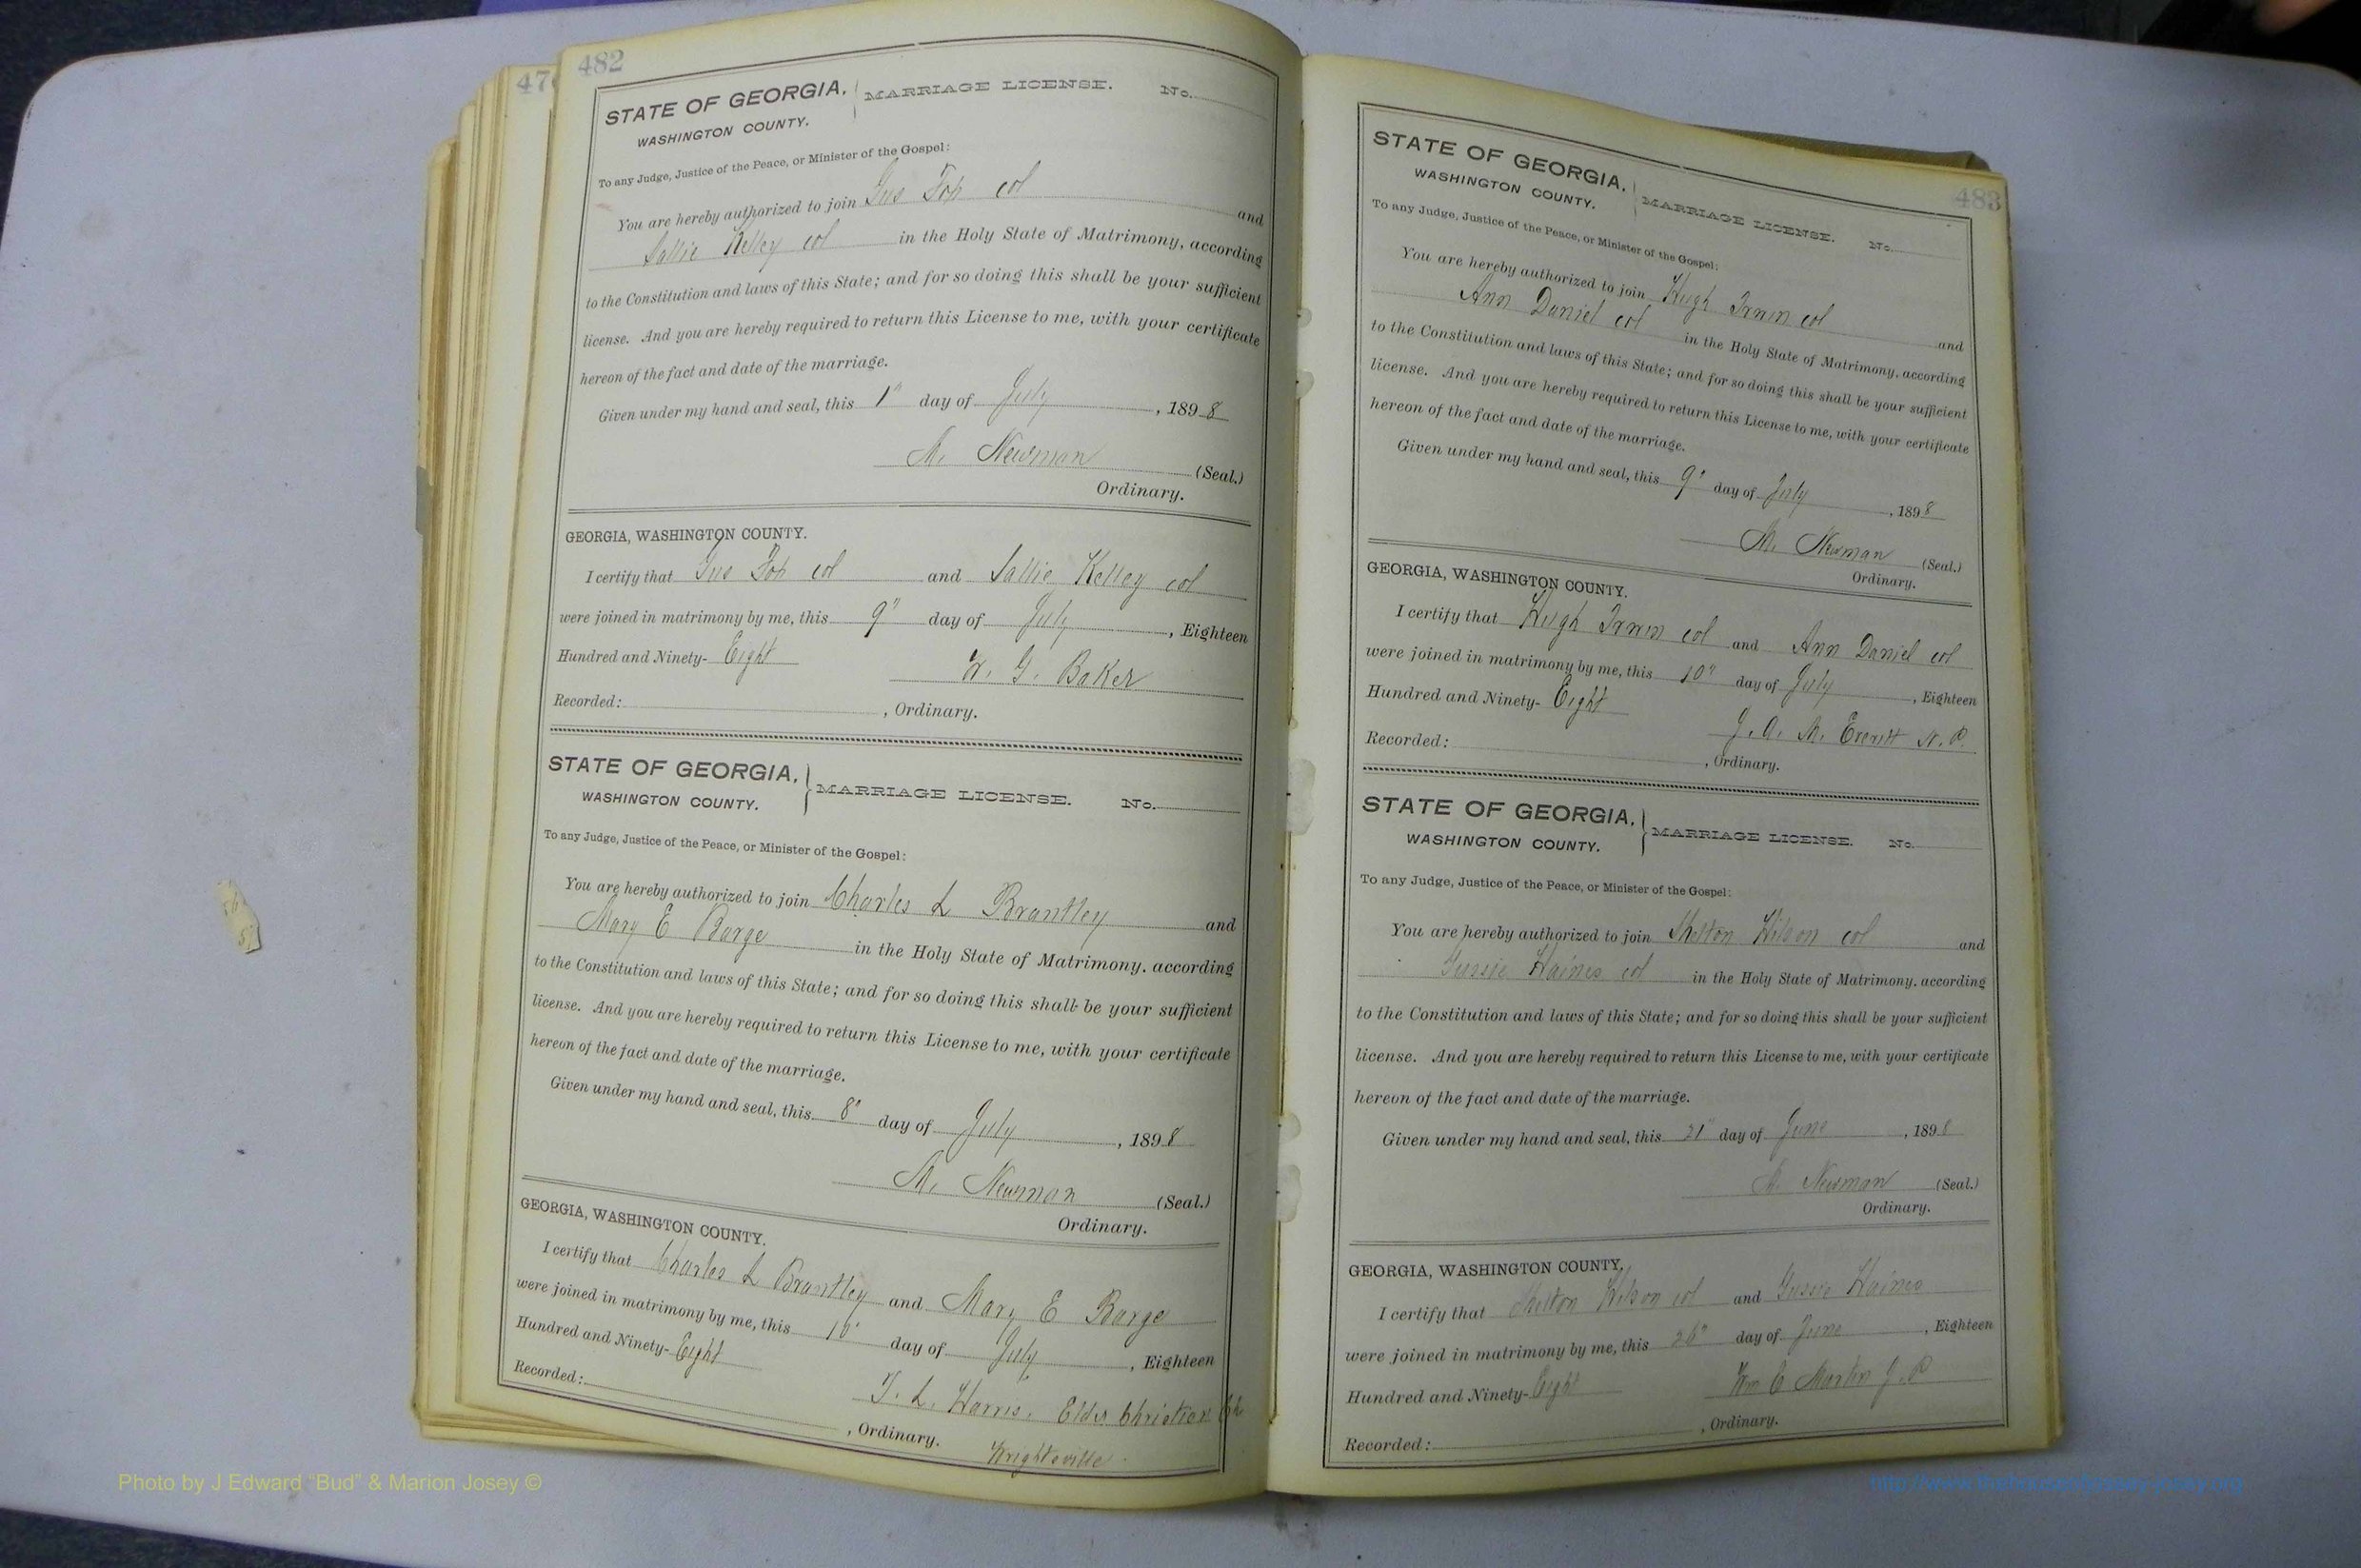 476
482
STATE OF GEORGIA, MARRIAGE LICENSE. No.
WASHINGTON COUNTY.
To any Judge, Justice of the Peace, or Minister of the Gospel:
You are hereby authorized to join Gus col and
Sallie Kelley col in the Holy State of Matrimony, according
to the Constitution and laws of this State; and for so doing this shall be your sufficient
license. And you are hereby required to return this License to me, with your certificate
hereon of the fact and date of the marriage.
Given under my hand and seal, this 1" day of July, 1898
M. Newman (Seal.)
Ordinary.
GEORGIA, WASHINGTON COUNTY.
I certify that Gus col and Sallie Kelley col
were joined in matrimony by me, this 9" day of July, Eighteen
Hundred and Ninety- Eight
W. G. Baker
Recorded: , Ordinary.
STATE OF GEORGIA, MARRIAGE LICENSE. No.
WASHINGTON COUNTY.
To any Judge, Justice of the Peace, or Minister of the Gospel:
You are hereby authorized to join Charles L Brantley and
Mary E Barge in the Holy State of Matrimony, according
to the Constitution and laws of this State; and for so doing this shall be your sufficient
license. And you are hereby required to return this License to me, with your certificate
hereon of the fact and date of the marriage.
Given under my hand and seal, this 8" day of July, 1898
M. Newman (Seal.)
Ordinary.
GEORGIA, WASHINGTON COUNTY.
I certify that Charles L Brantley and Mary E Barge
were joined in matrimony by me, this 10" day of July, Eighteen
Hundred and Ninety- Eight
T. L. Harris, Elder Christian Ch
Recorded: , Ordinary.
Wrightsville
483
STATE OF GEORGIA, MARRIAGE LICENSE. No.
WASHINGTON COUNTY.
To any Judge, Justice of the Peace, or Minister of the Gospel:
You are hereby authorized to join Hugh Irwin col and
Ann Daniel col in the Holy State of Matrimony, according
to the Constitution and laws of this State; and for so doing this shall be your sufficient
license. And you are hereby required to return this License to me, with your certificate
hereon of the fact and date of the marriage.
Given under my hand and seal, this 9" day of July, 1898
M. Newman (Seal.)
Ordinary.
GEORGIA, WASHINGTON COUNTY.
I certify that Hugh Irwin col and Ann Daniel col
were joined in matrimony by me, this 10" day of July, Eighteen
Hundred and Ninety- Eight
J. A. M. Everitt N. P.
Recorded: , Ordinary.
STATE OF GEORGIA, MARRIAGE LICENSE. No.
WASHINGTON COUNTY.
To any Judge, Justice of the Peace, or Minister of the Gospel:
You are hereby authorized to join Shelton Wilson col and
Gussie Haines col in the Holy State of Matrimony, according
to the Constitution and laws of this State; and for so doing this shall be your sufficient
license. And you are hereby required to return this License to me, with your certificate
hereon of the fact and date of the marriage.
Given under my hand and seal, this 21" day of June, 1898
M. Newman (Seal.)
Ordinary.
GEORGIA, WASHINGTON COUNTY.
I certify that Shelton Wilson col and Gussie Haines
were joined in matrimony by me, this 26" day of June, Eighteen
Hundred and Ninety- Eight
Wm C Martin J. P
Recorded: , Ordinary.
Photo by J Edward “Bud” & Marion Josey ©